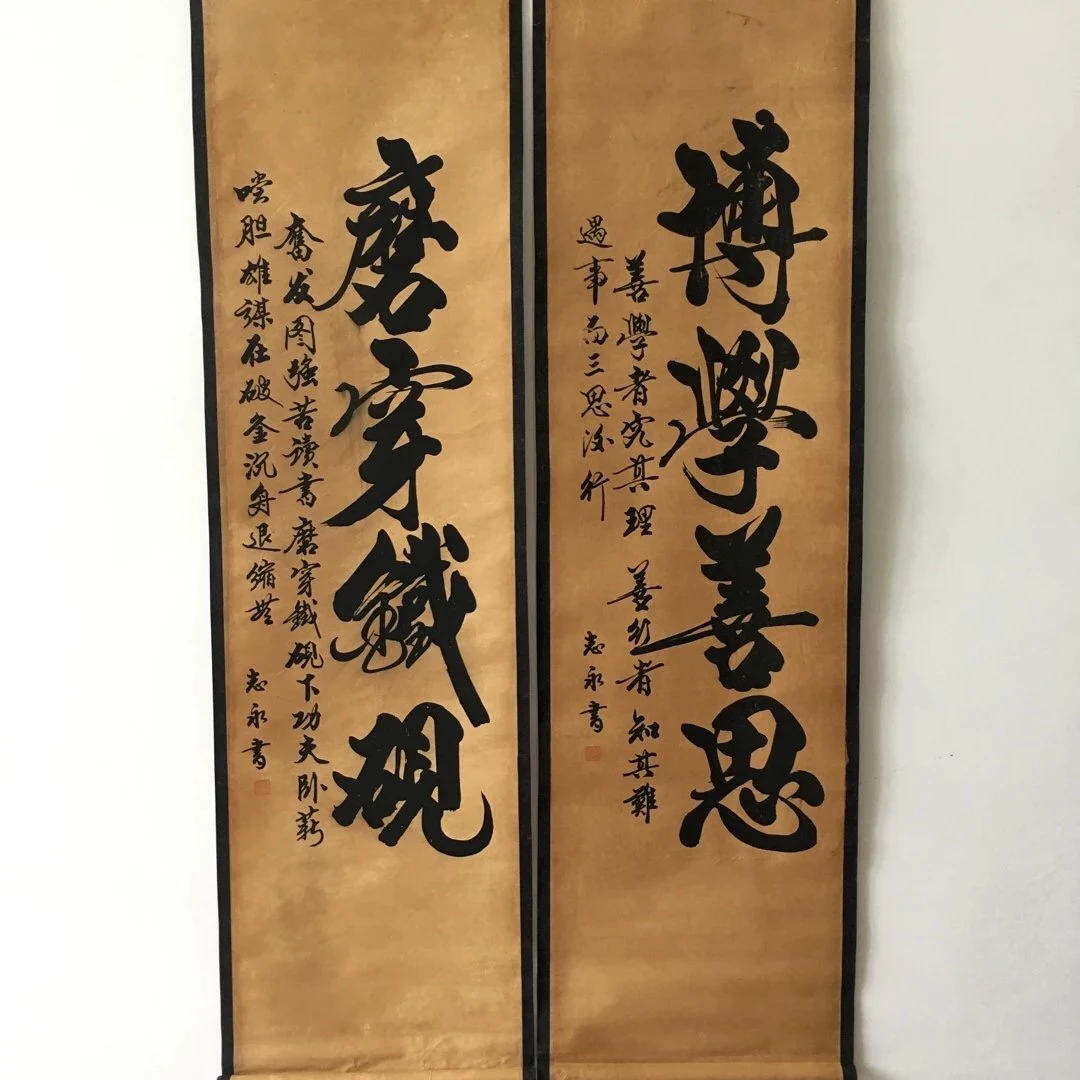 博學善思
善學者究其理 善行者知其難
遇事而三思後行
志永書
磨穿鐵硯
奮发图强苦读書磨穿鐵硯下功夫卧薪
嚐胆雄謀在破釜沉舟退縮無
志永書